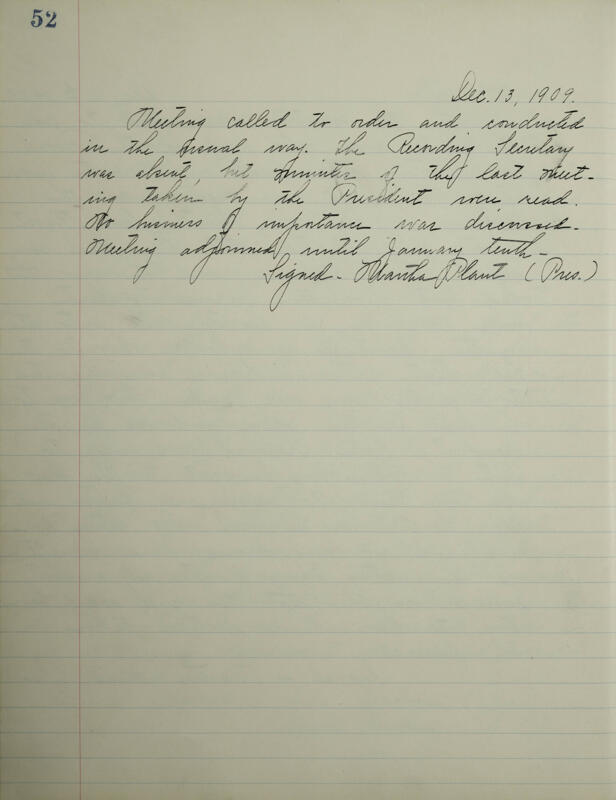 52
Dec. 13, 1909.
Meeting called to order and conducted
in the usual way. The Recording Secretary
was absent, but minutes of the last meet-
ing taken by the President were read.
No business of importance was discussed.
Meeting adjourned until January tenth.
Signed - Martha Plant (Pres.)